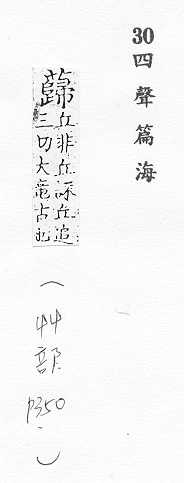 30四聲篇海
蘬
丘非丘誄丘追
三切大竜古也
(艸部 p350.)